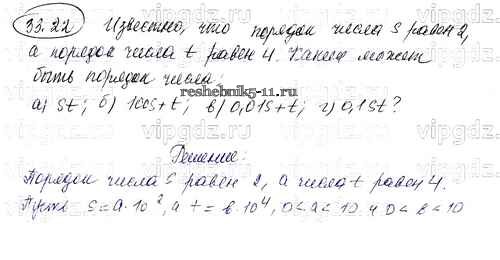 33.22 Известно, что порядок числа s равен 2,
а порядок числа t равен 4. Каким может
быть порядок числа:
reshebnik5-11.ru
а) st; б) 100s+t; в) 0,01s+t; г) 0,1st?
Решение:
Порядок числа s равен 2, а числа t равен 4.
Пусть s=a·10², а t=b·10⁴, 0<a<10 и 0<b<10
vipgdz.com